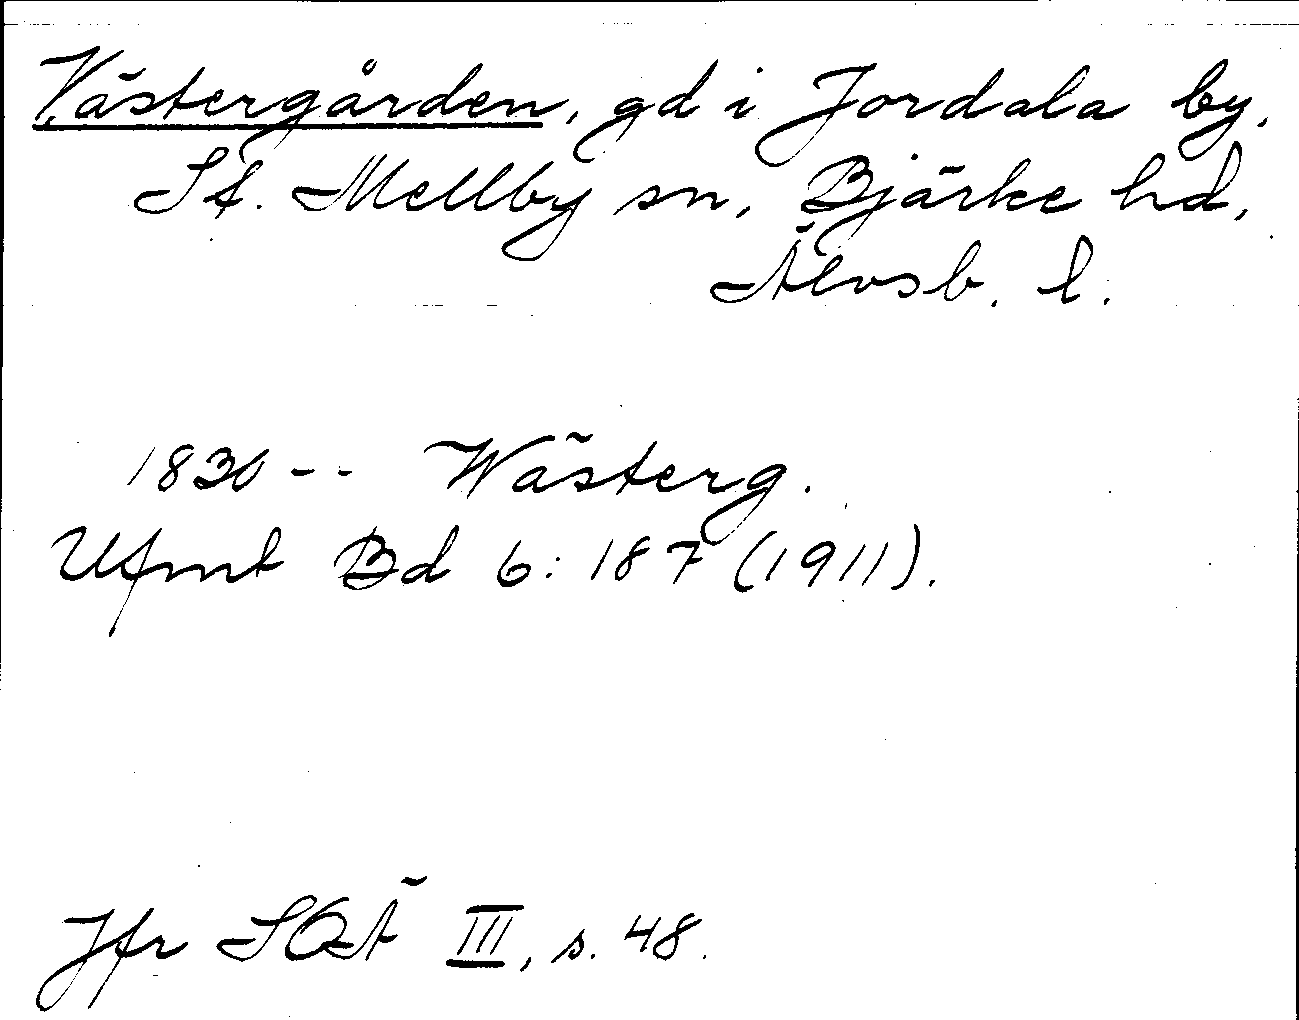 Västergården, gd i Jordala by,
St. Mellby sn, Bjärke hd,
Älvsb. l.
1830 -- Wästerg.
Ufmt Bd 6: 187 (1911).
Jfr SOÄ III, s. 48.